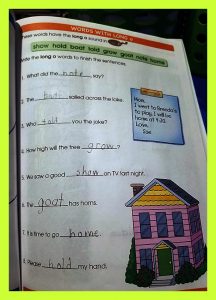 WORDS WITH LONG o
These words have the long o sound in
show hold boat told grow goat note home
Write the long o words to finish the sentences.
1. What did the note say?
2. The boat sailed across the lake.
3. Who told you the joke?
4. How high will the tree grow?
5. We saw a good show on TV last night.
6. The goat has horns.
7. It is time to go home.
8. Please hold my hand.
Mom,
I went to Brenda's
to play. I will be
home at 4:30.
Love,
Sue